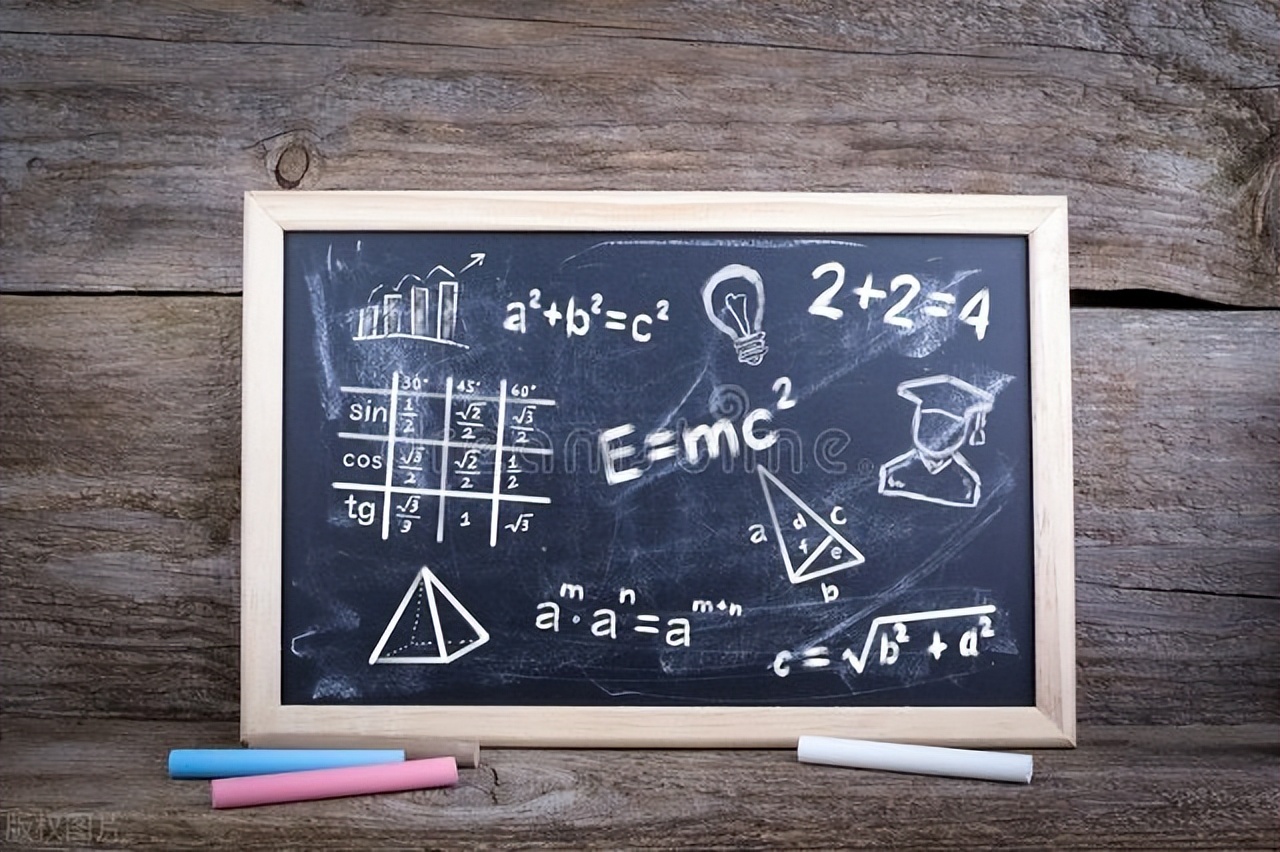 a²+b²=c²
2+2=4
30° 45° 60°
sin 1/2 √2/2 √3/2
cos √3/2 √2/2 1/2
tg √3/3 1 √3
E=mc²
a d c
f e
b
aᵐ·aⁿ=aᵐ⁺ⁿ
c=√b²+a²
dreamstime.
版权图片